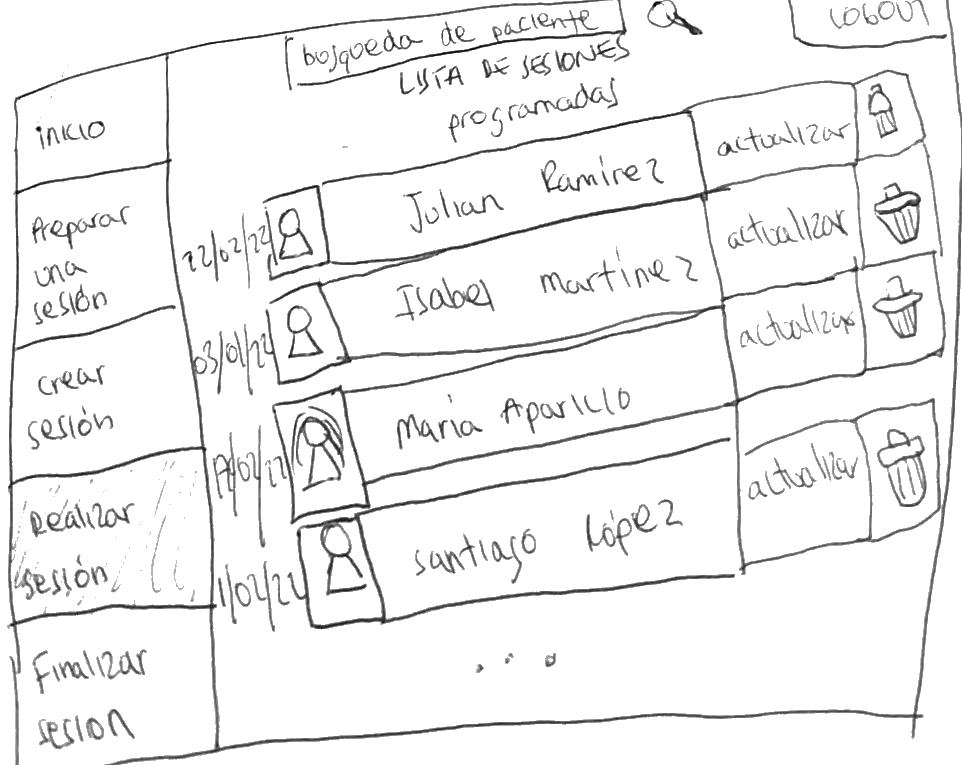 busqueda de paciente
LOGOUT
LISTA DE SESIONES
programadas
inicio
Preparar
una
sesión
crear
sesión
Realizar
sesión
Finalizar
sesion
22/02/22
Julian Ramírez
actualizar
03/01/22
Isabel martínez
actualizar
maría Aparicio
actualizar
santiago López
actualizar
...